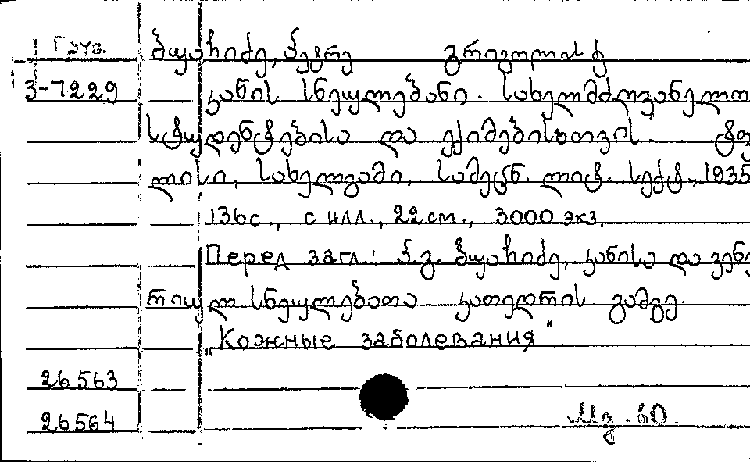 Груз.
3-7229
მყარიძე, პეტრე გრიგოლის ძ
კანის სნეულებანი. სახელმძღვანელო
სტუდენტებისა და ექიმებისათვის. ტფი
ლისი, სახელგამი, სამეცნ. ლიტ. სექტ., 1935
136 с., с илл., 22 cm., 3000 экз.
Перед загл.: პ.გ. მყარიძე, კანისა და ვენე
რიულ სნეულებათა კათედრის გამგე.
"Кожные заболевания"
26563
26564
60